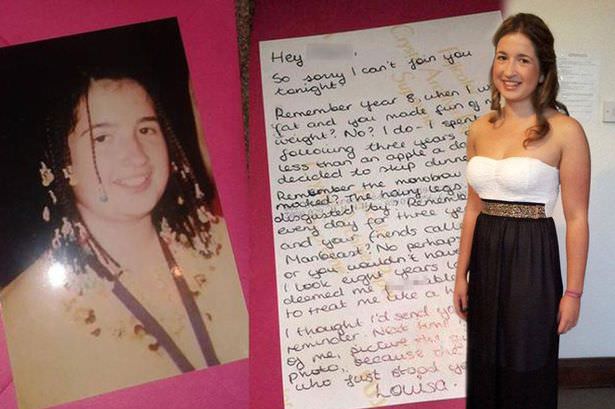 Hey
So sorry I can't join you
tonight.
Remember year 8, when I w
fat and you made fun of m
weight? No? I do - I spent
following three years
less than an apple a da
decided to skip dinne
Remember the monobrow
mocked? The hairy legs
disgusted by? Remembe
every day for three ye
and your friends calle
Manbeast? No perhap
or you wouldn't have
I look eight years la
deemed me
to treat me like a
I thought I'd send you
reminder. Next time
of me, picture the
photo, because she
who just stood yo
Louisa.